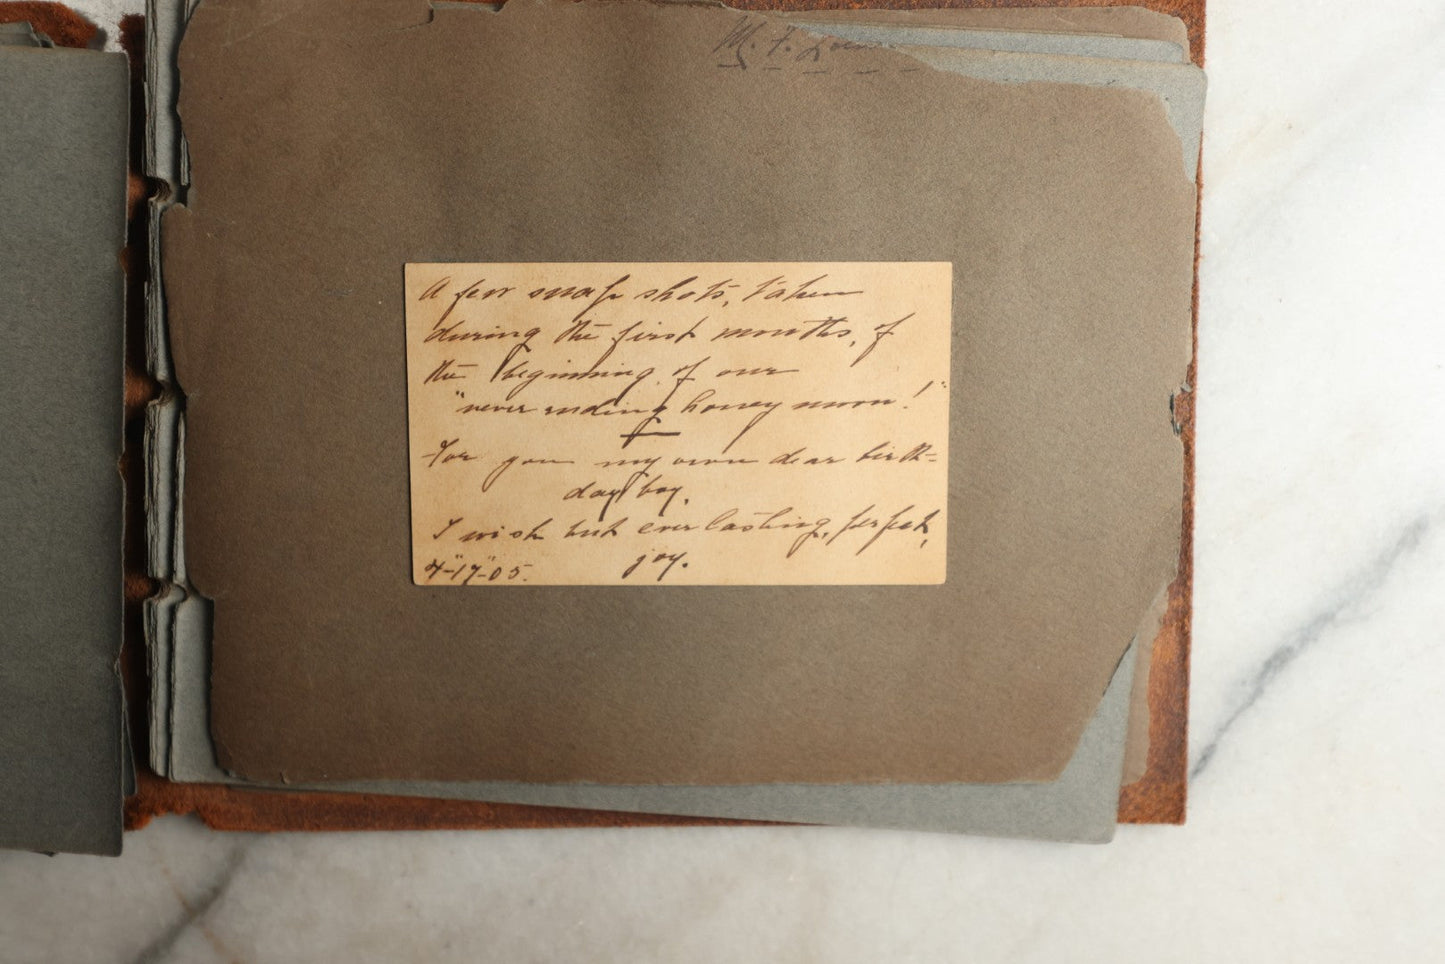 M. F.
A few snap shots, taken
during the first months, of
the beginning of our
"never ending honey moon!"
For you my own dear birth-
day boy.
I wish but everlasting, perfect,
joy.
4-"17"-05.